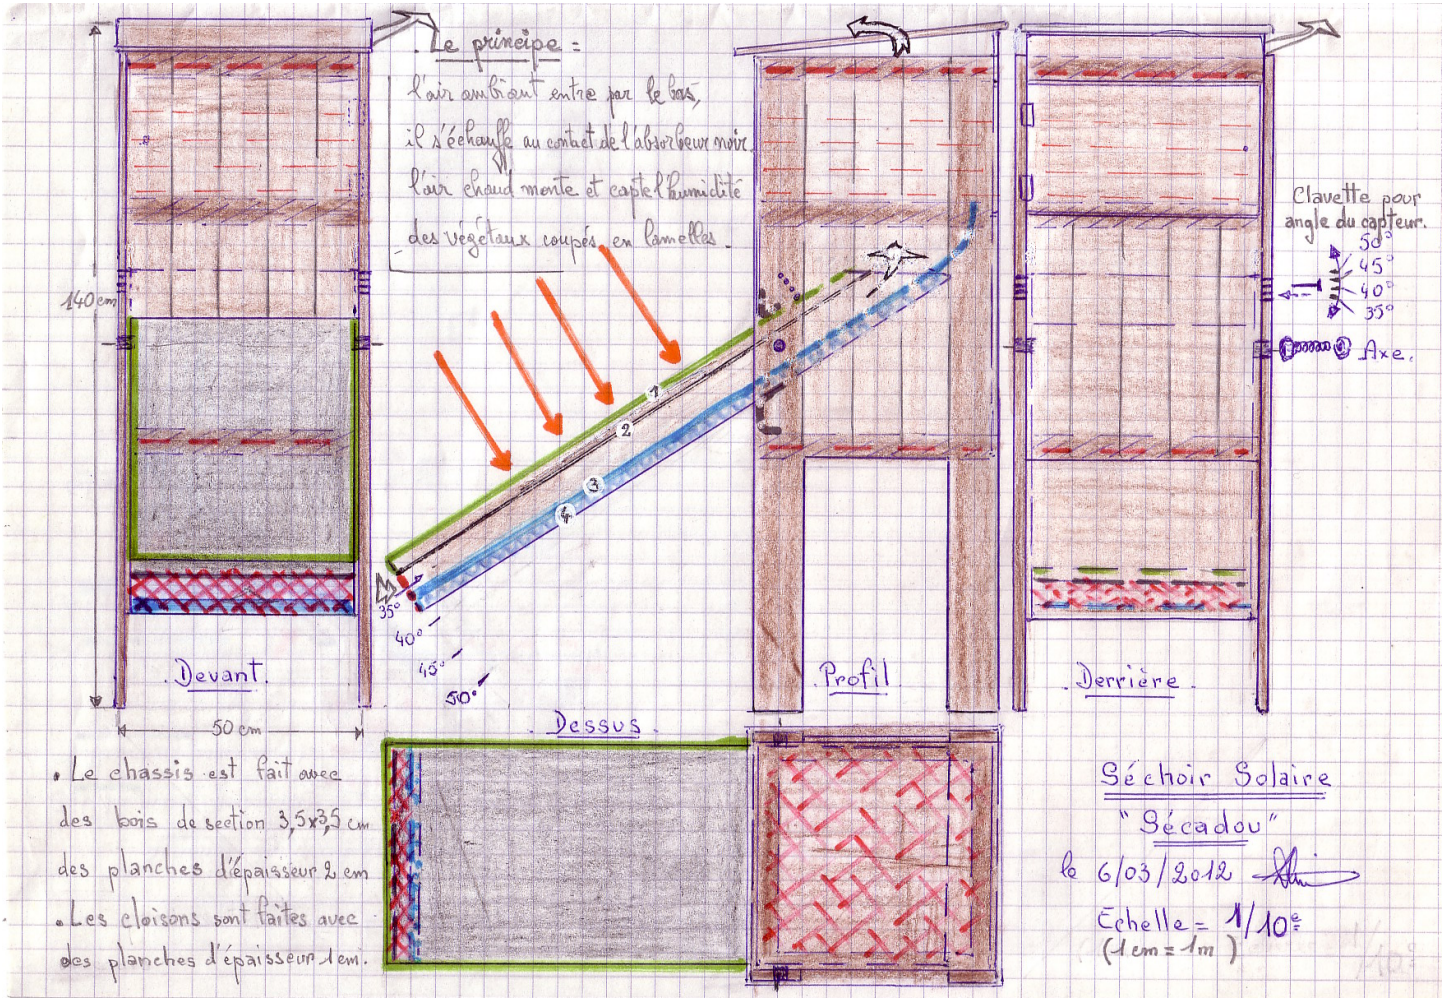 Le principe :
l'air ambiant entre par le bas,
il s'échauffe au contact de l'absorbeur noir.
l'air chaud monte et capte l'humidité
des végétaux coupés en lamelles.
140 cm
1
2
3
4
35°
40°
45°
50°
Clavette pour
angle du capteur.
50°
45°
40°
35°
Axe.
. Devant.
. Profil
. Derrière .
50 cm
. Dessus .
. Le chassis est fait avec
des bois de section 3,5x3,5 cm
des planches d'épaisseur 2 cm
. Les cloisons sont faites avec
des planches d'épaisseur 1 cm.
Séchoir Solaire
"Sécadou"
le 6/03/2012
Echelle = 1/10e
(1 cm = 1m )